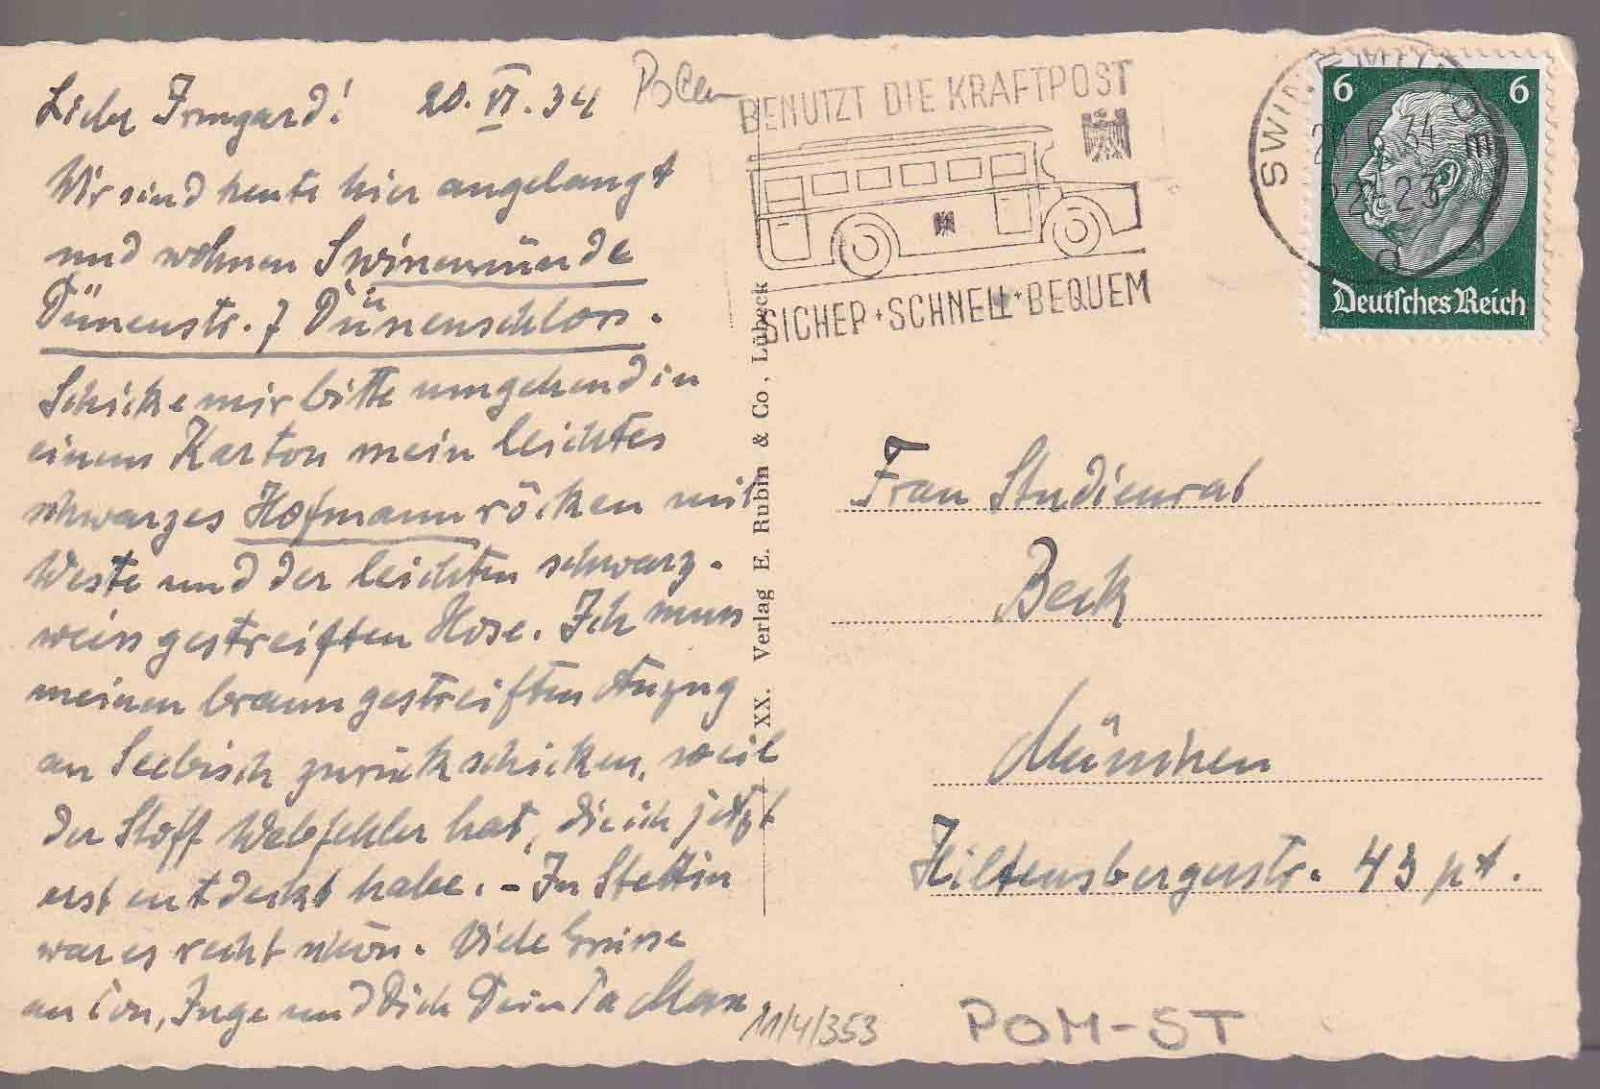 Liebe Irmgard! 20. VI. 34
Wir sind heute hier angelangt
und wohnen Swinemünde
Dünenstr. 7 Dünenschloss.
Schicke mir bitte umgehend in
einem Karton mein leichtes
schwarzes Hofmannröcken mit
Weste und der leichten schwarz-
weiss gestreiften Hose. Ich muss
meinen braungestreiften Anzug
an Seebisch zurückschicken, weil
der Stoff Webfehler hat, die ich jetzt
erst entdeckt habe. - In Stettin
war es recht schön. Viele Grüsse
an Inge und Dich Dein Max
Polen
BENUTZT DIE KRAFTPOST
SICHER + SCHNELL + BEQUEM
SWINEMÜNDE
20.6.34
22-23
6 6
Deutsches Reich
XX. Verlag E. Rubin & Co., Lübeck
Frau Studienrat
Beck
München
Hiltensbergerstr. 43 pt.
11/4/353
POM-ST